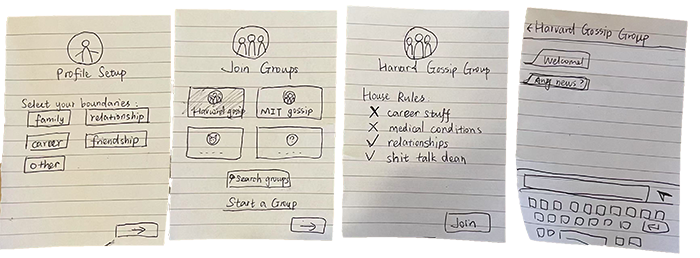 Profile Setup
Select your boundaries:
family relationship
career friendship
other
→
Join Groups
Harvard gossip MIT gossip
?
Search groups
Start a Group
→
Harvard Gossip Group
House Rules:
X career stuff
X medical conditions
✓ relationships
✓ shit talk dean
Join
< Harvard Gossip Group
Welcome!
Any news?